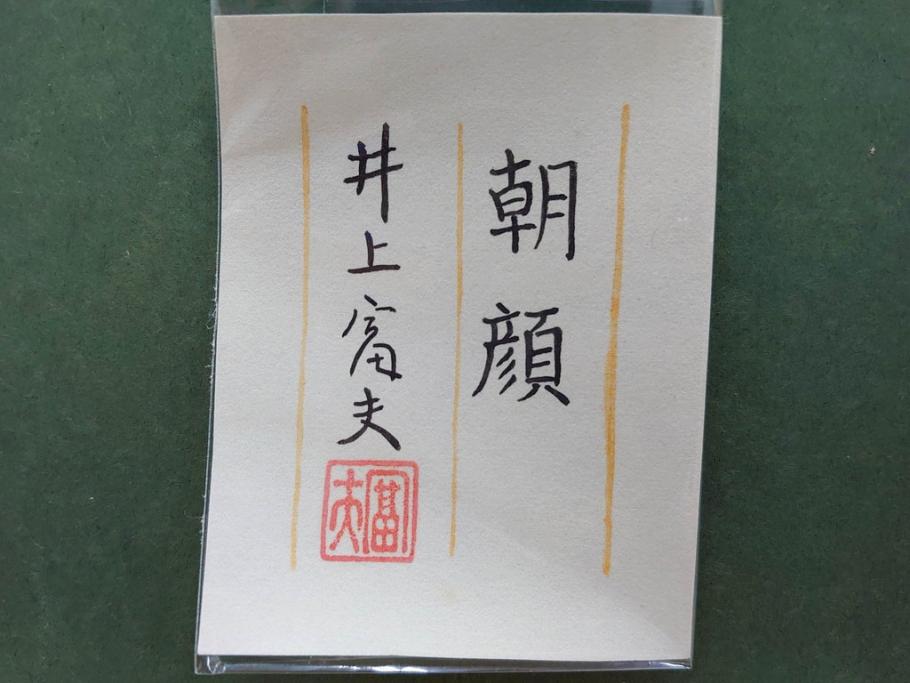 朝顔
井上富夫
富夫